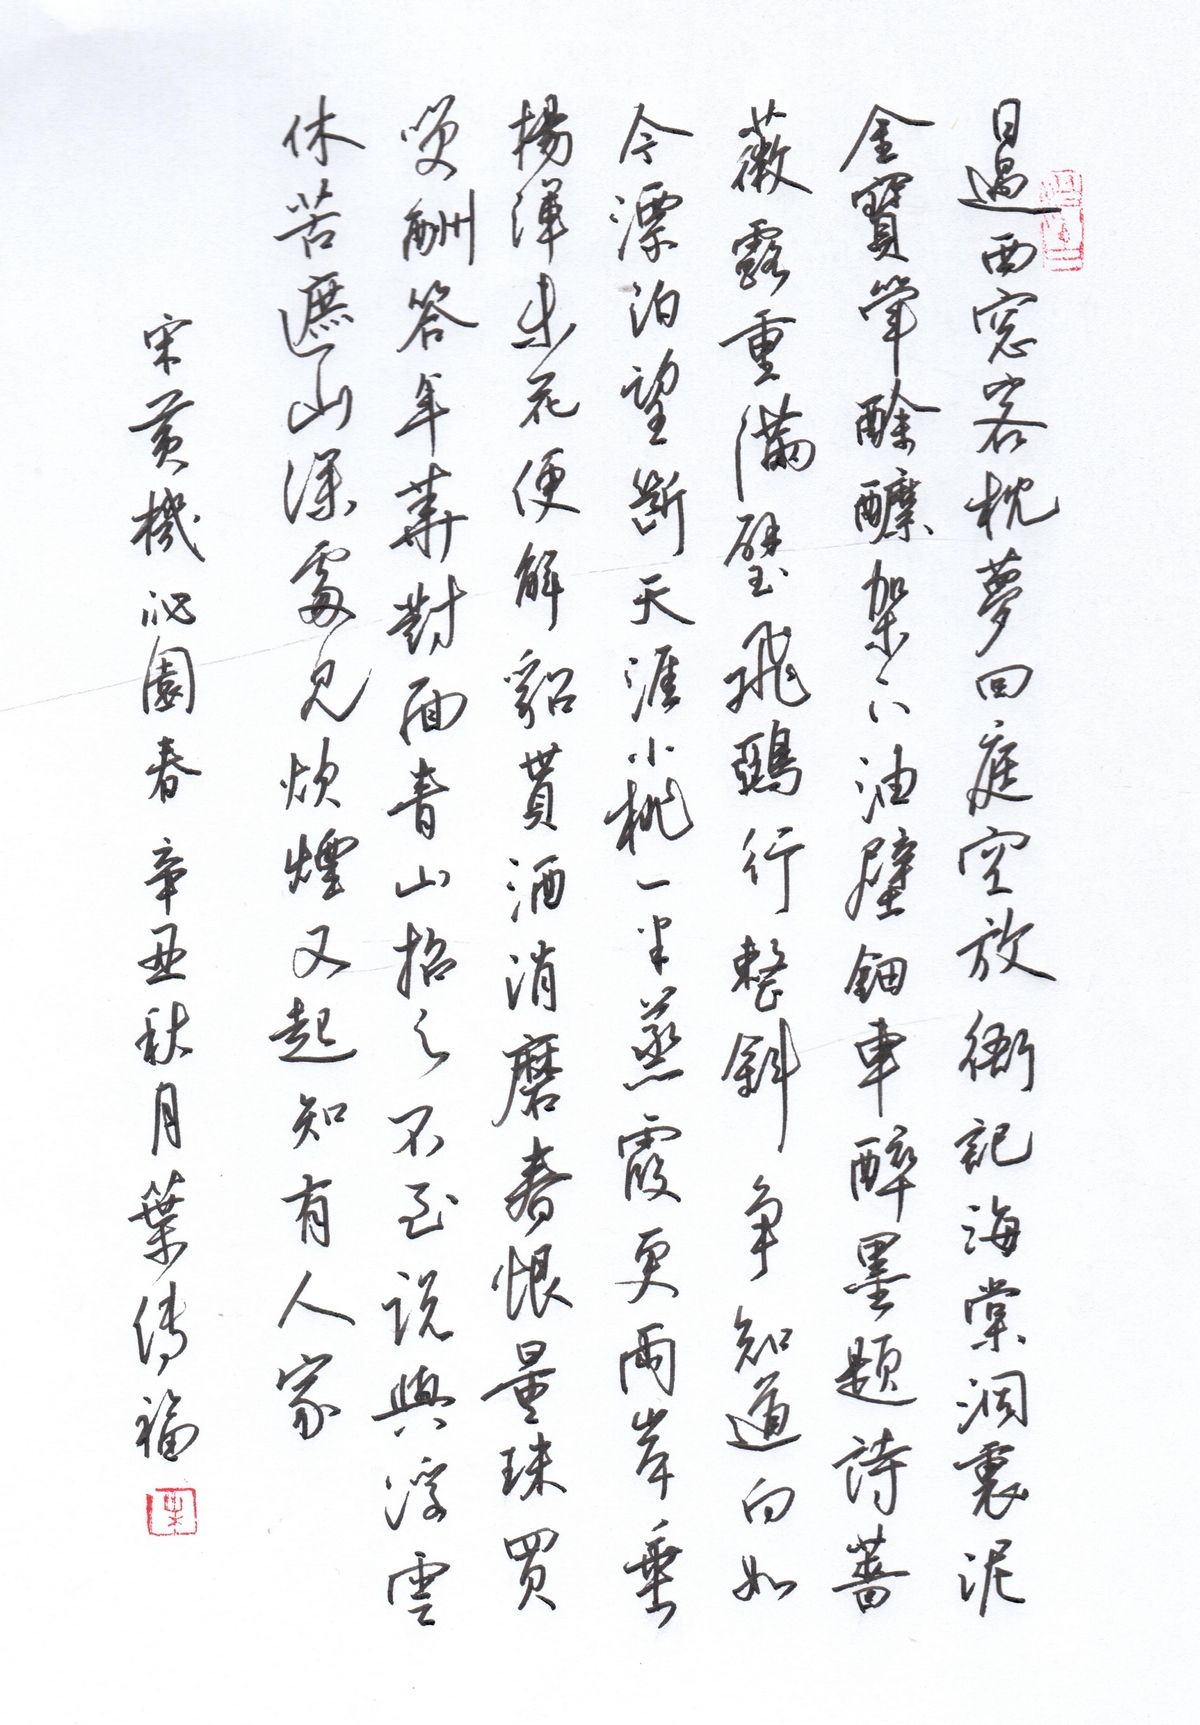 日過西窓客枕夢回庭空放衙記海棠洞裏泥
金寶斝酴醾架下油壁鈿車醉墨題詩薔
薇露重滿壁飛鵶行整斜爭知道向如
今漂泊望斷天涯小桃一半蒸霞更兩岸垂
楊渾未花便解貂貰酒消磨春恨量珠買
笑酬答年華對面青山招之不至説與浮雲
休苦遮山深處見炊煙又起知有人家
宋黃機沁園春 辛丑秋月葉傳福